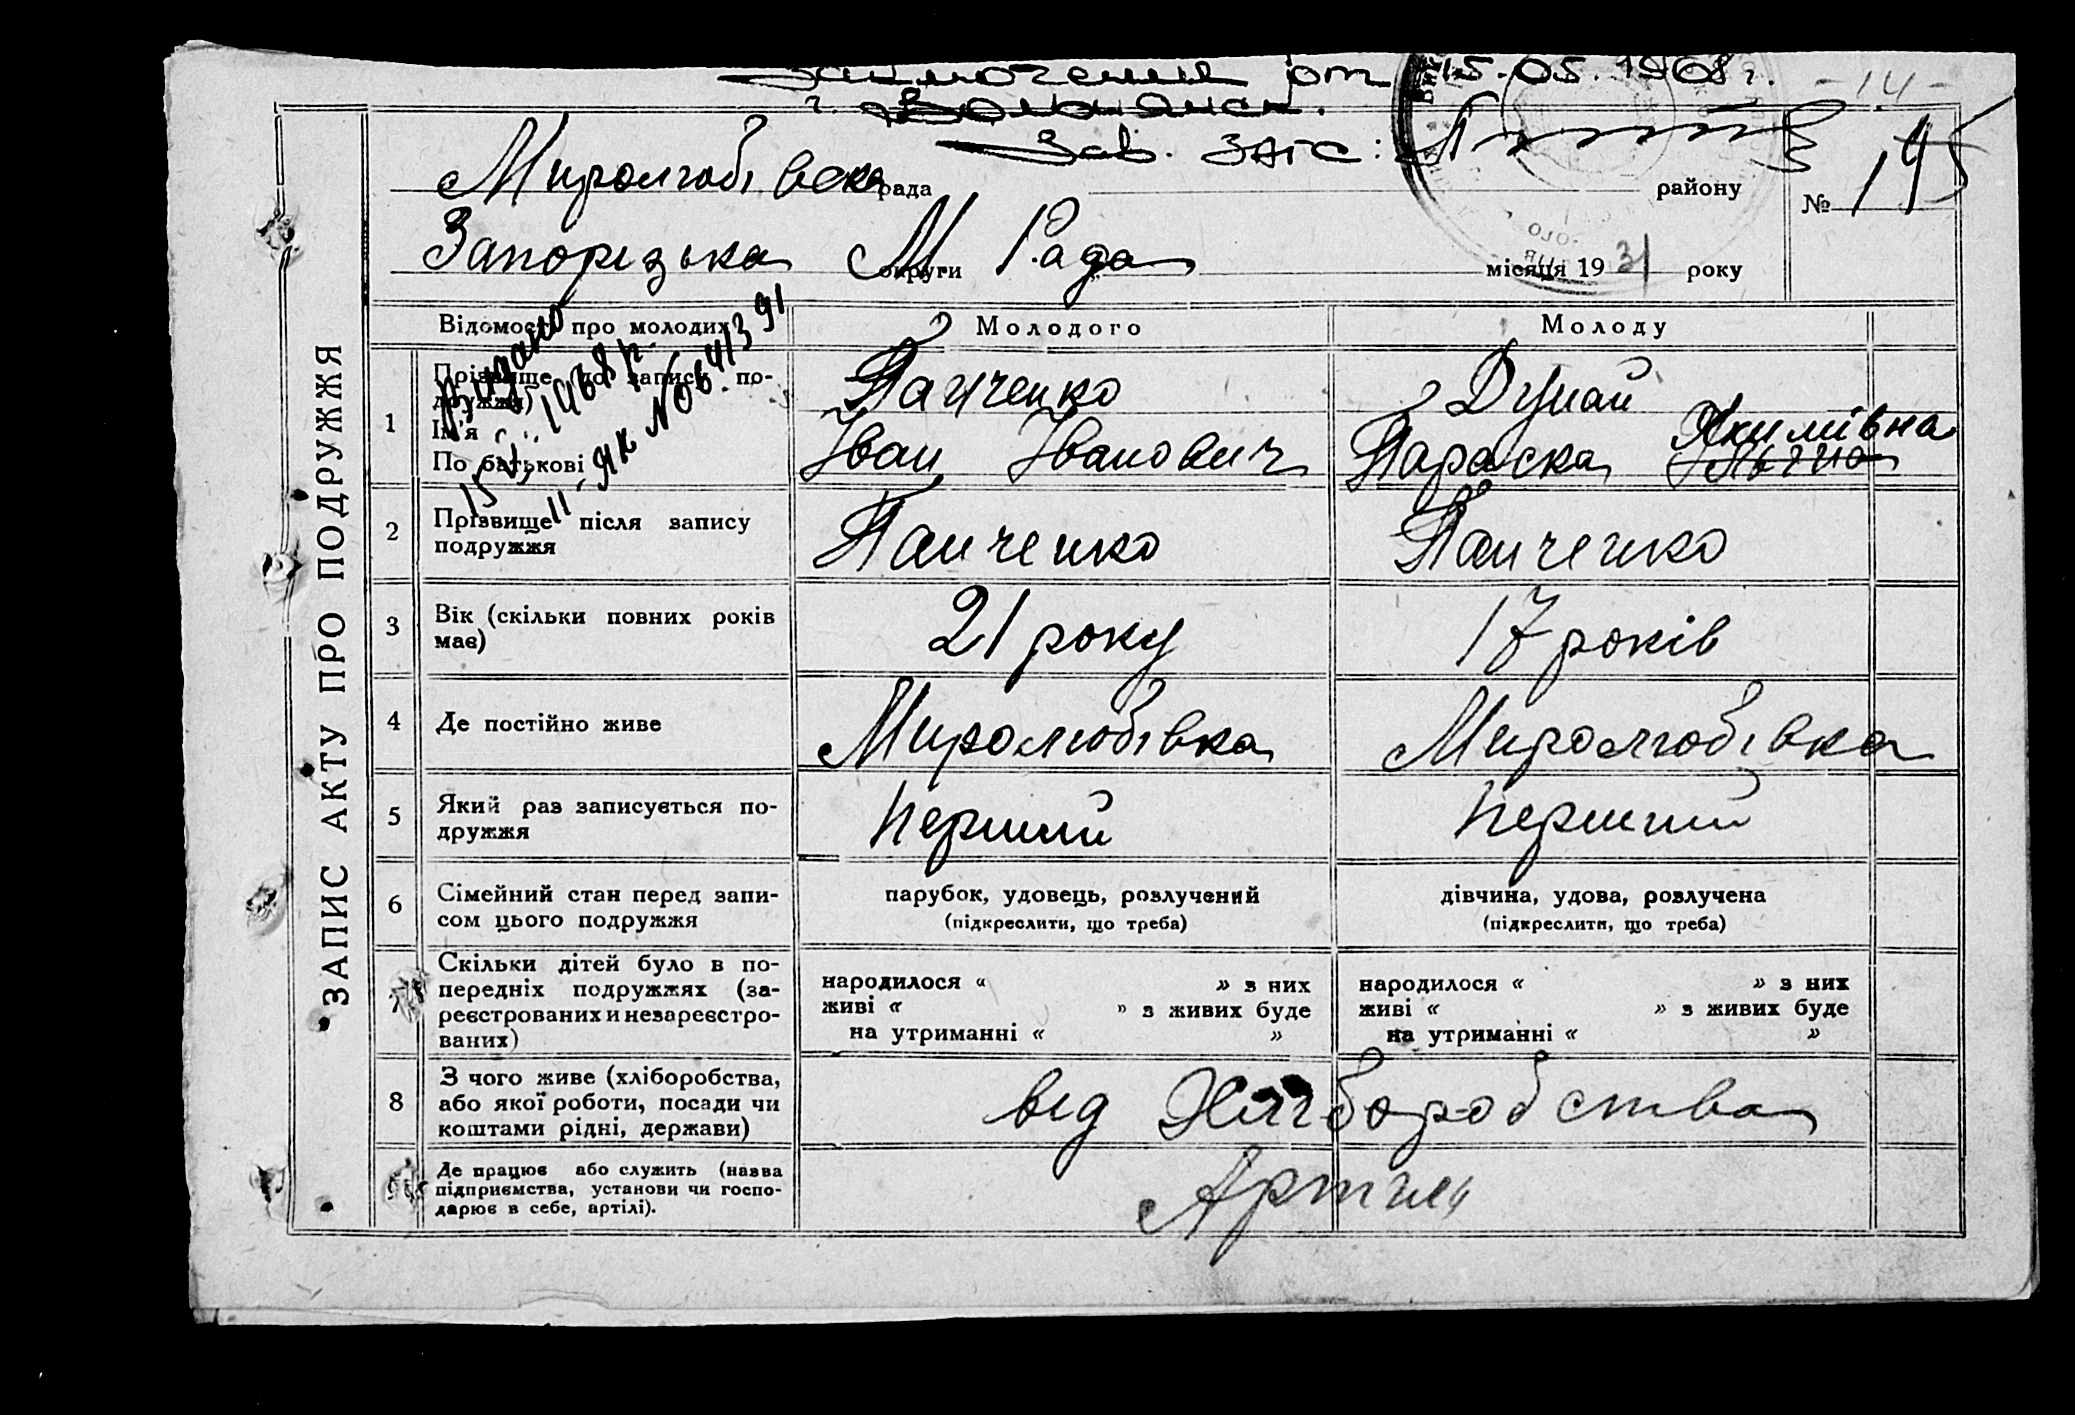 заключения от 15.05.1968 г. - 14 -
г. Вольнянск.
Зав. ЗАГС:
Миролюбівска рада району № 145
Запорізька округи М Рада місяця 1931 року
ЗАПИС АКТУ ПРО ПОДРУЖЖЯ
Відомості про молодих Молодого Молоду
Видано
15.V. 1968 р.
II-ЯК № 0641391
1 Прізвище (до запису подружжя) Панченко Дунай
Ім'я
По батькові Іван Іванович Параска Якимівна
2 Прізвище після запису Панченко Панченко
подружжя
3 Вік (скільки повних років 21 року 17 років
має)
4 Де постійно живе Миролюбівка Миролюбівка
5 Який раз записується по- Перший Перший
дружжя
6 Сімейний стан перед запи- парубок, удовець, розлучений дівчина, удова, розлучена
сом цього подружжя (підкреслити, що треба) (підкреслити, що треба)
7 Скільки дітей було в по-
передніх подружжях (за- народилося « » з них народилося « » з них
реєстрованих и незареєстро- живі « » з живих буде живі « » з живих буде
ваних) на утриманні « » на утриманні « »
8 З чого живе (хліборобства,
або якої роботи, посади чи від Хліборобства
коштами рідні, держави)
Де працює або служить (назва
підприємства, установи чи госпо- Артіль
дарює в себе, артілі).